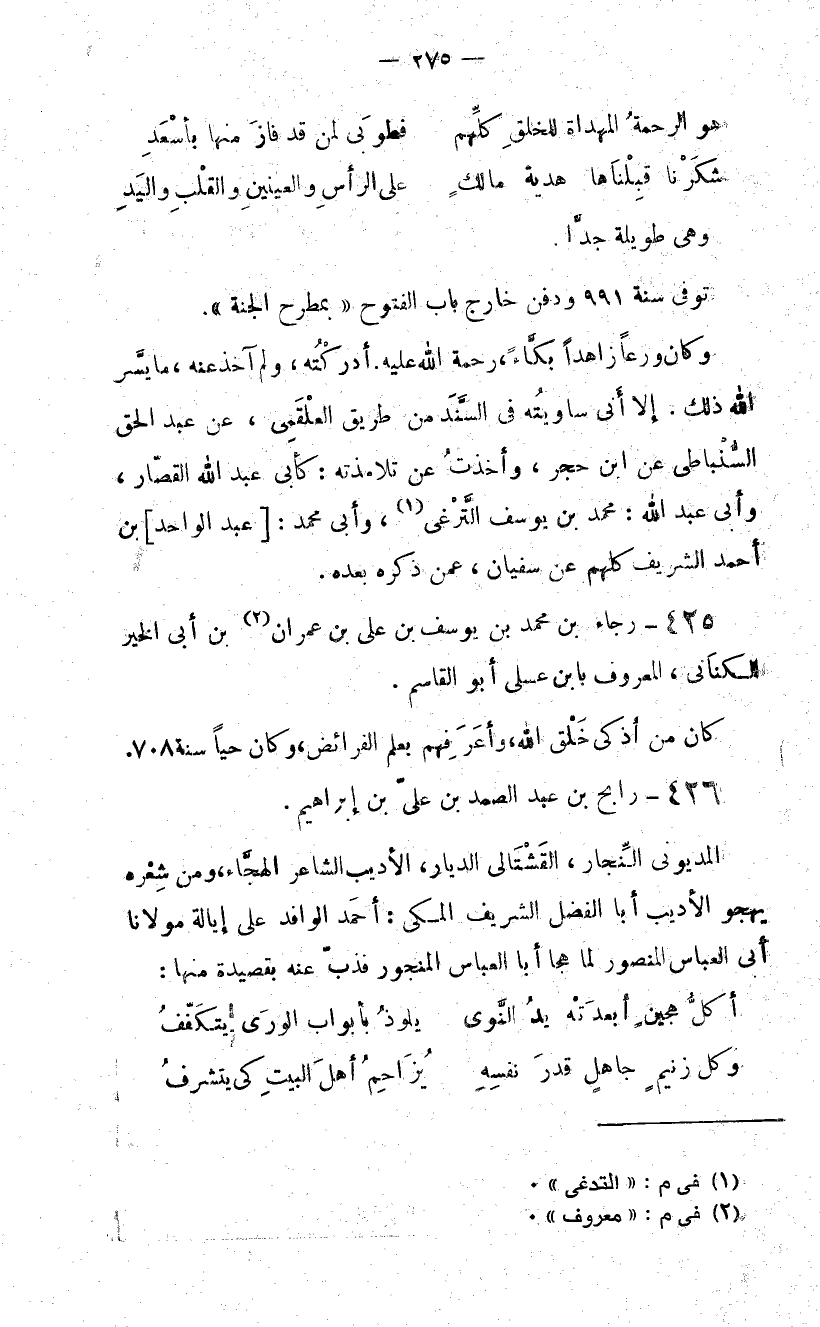 — ٢٧٥ —
هو الرحمةُ المهداة للخلقِ كلِّهم فطوبَى لمن قد فازَ منها بأسْعَدِ
شكَرْنا قبِلْنَاها هدية مالكٍ على الرأسِ والعينينِ والقلْبِ واليَدِ
وهى طويلة جدًّا .
توفى سنة ٩٩١ ودفن خارج باب الفتوح « بمطرح الجنة ».
وكان ورعاً زاهداً بكَّاءً، رحمة الله عليه. أدركْتُه ، ولم آخذ عنه ، ما يسَّر
الله ذلك . إلا أَنى ساويتُه فى السَّنَد من طريق العلْقَمِى ، عن عبد الحق
السُّنْباطى عن ابن حجر ، وأخذتُ عن تلامذته : كأبى عبد الله القصّار ،
وأبى عبد الله : محمد بن يوسف التَّرْغى(١) ، وأبى محمد : [ عبد الواحد] بن
أحمد الشريف كلهم عن سفيان ، عمن ذكره بعده .
٤٢٥ – رجاء بن محمد بن يوسف بن على بن عمران(٢) بن أبى الخير
الكنَانى ، المعروف بابن عسلى أبو القاسم .
كان من أذكى خَلْق الله، وأعرَفِهم بعلم الفرائض، وكان حياً سنة ٧٠٨.
٤٢٦ – رابح بن عبد الصمد بن علىّ بن إبراهيم .
المديونى النِّجار ، القَشْتَالى الديار، الأديب الشاعر الهجَّاء، ومن شِعْره
يهجو الأديب أبا الفضل الشريف المكى : أحمَد الوافد على إيالة مولانا
أبى العباس المنصور لما هجا أبا العباس المنجور فذبّ عنه بقصيدة منها :
أكلُّ هجينٍ أبعدَتْه يدُ النَّوى يلوذُ بأبواب الورَى يتكَفّفُ
وكل زنيمٍ جاهلٍ قدرَ نفسِهِ يُزَاحِمُ أهلَ البيتِ كى يتشرفُ
(١) فى م : « التدغى » .
(٢) فى م : « معروف » .